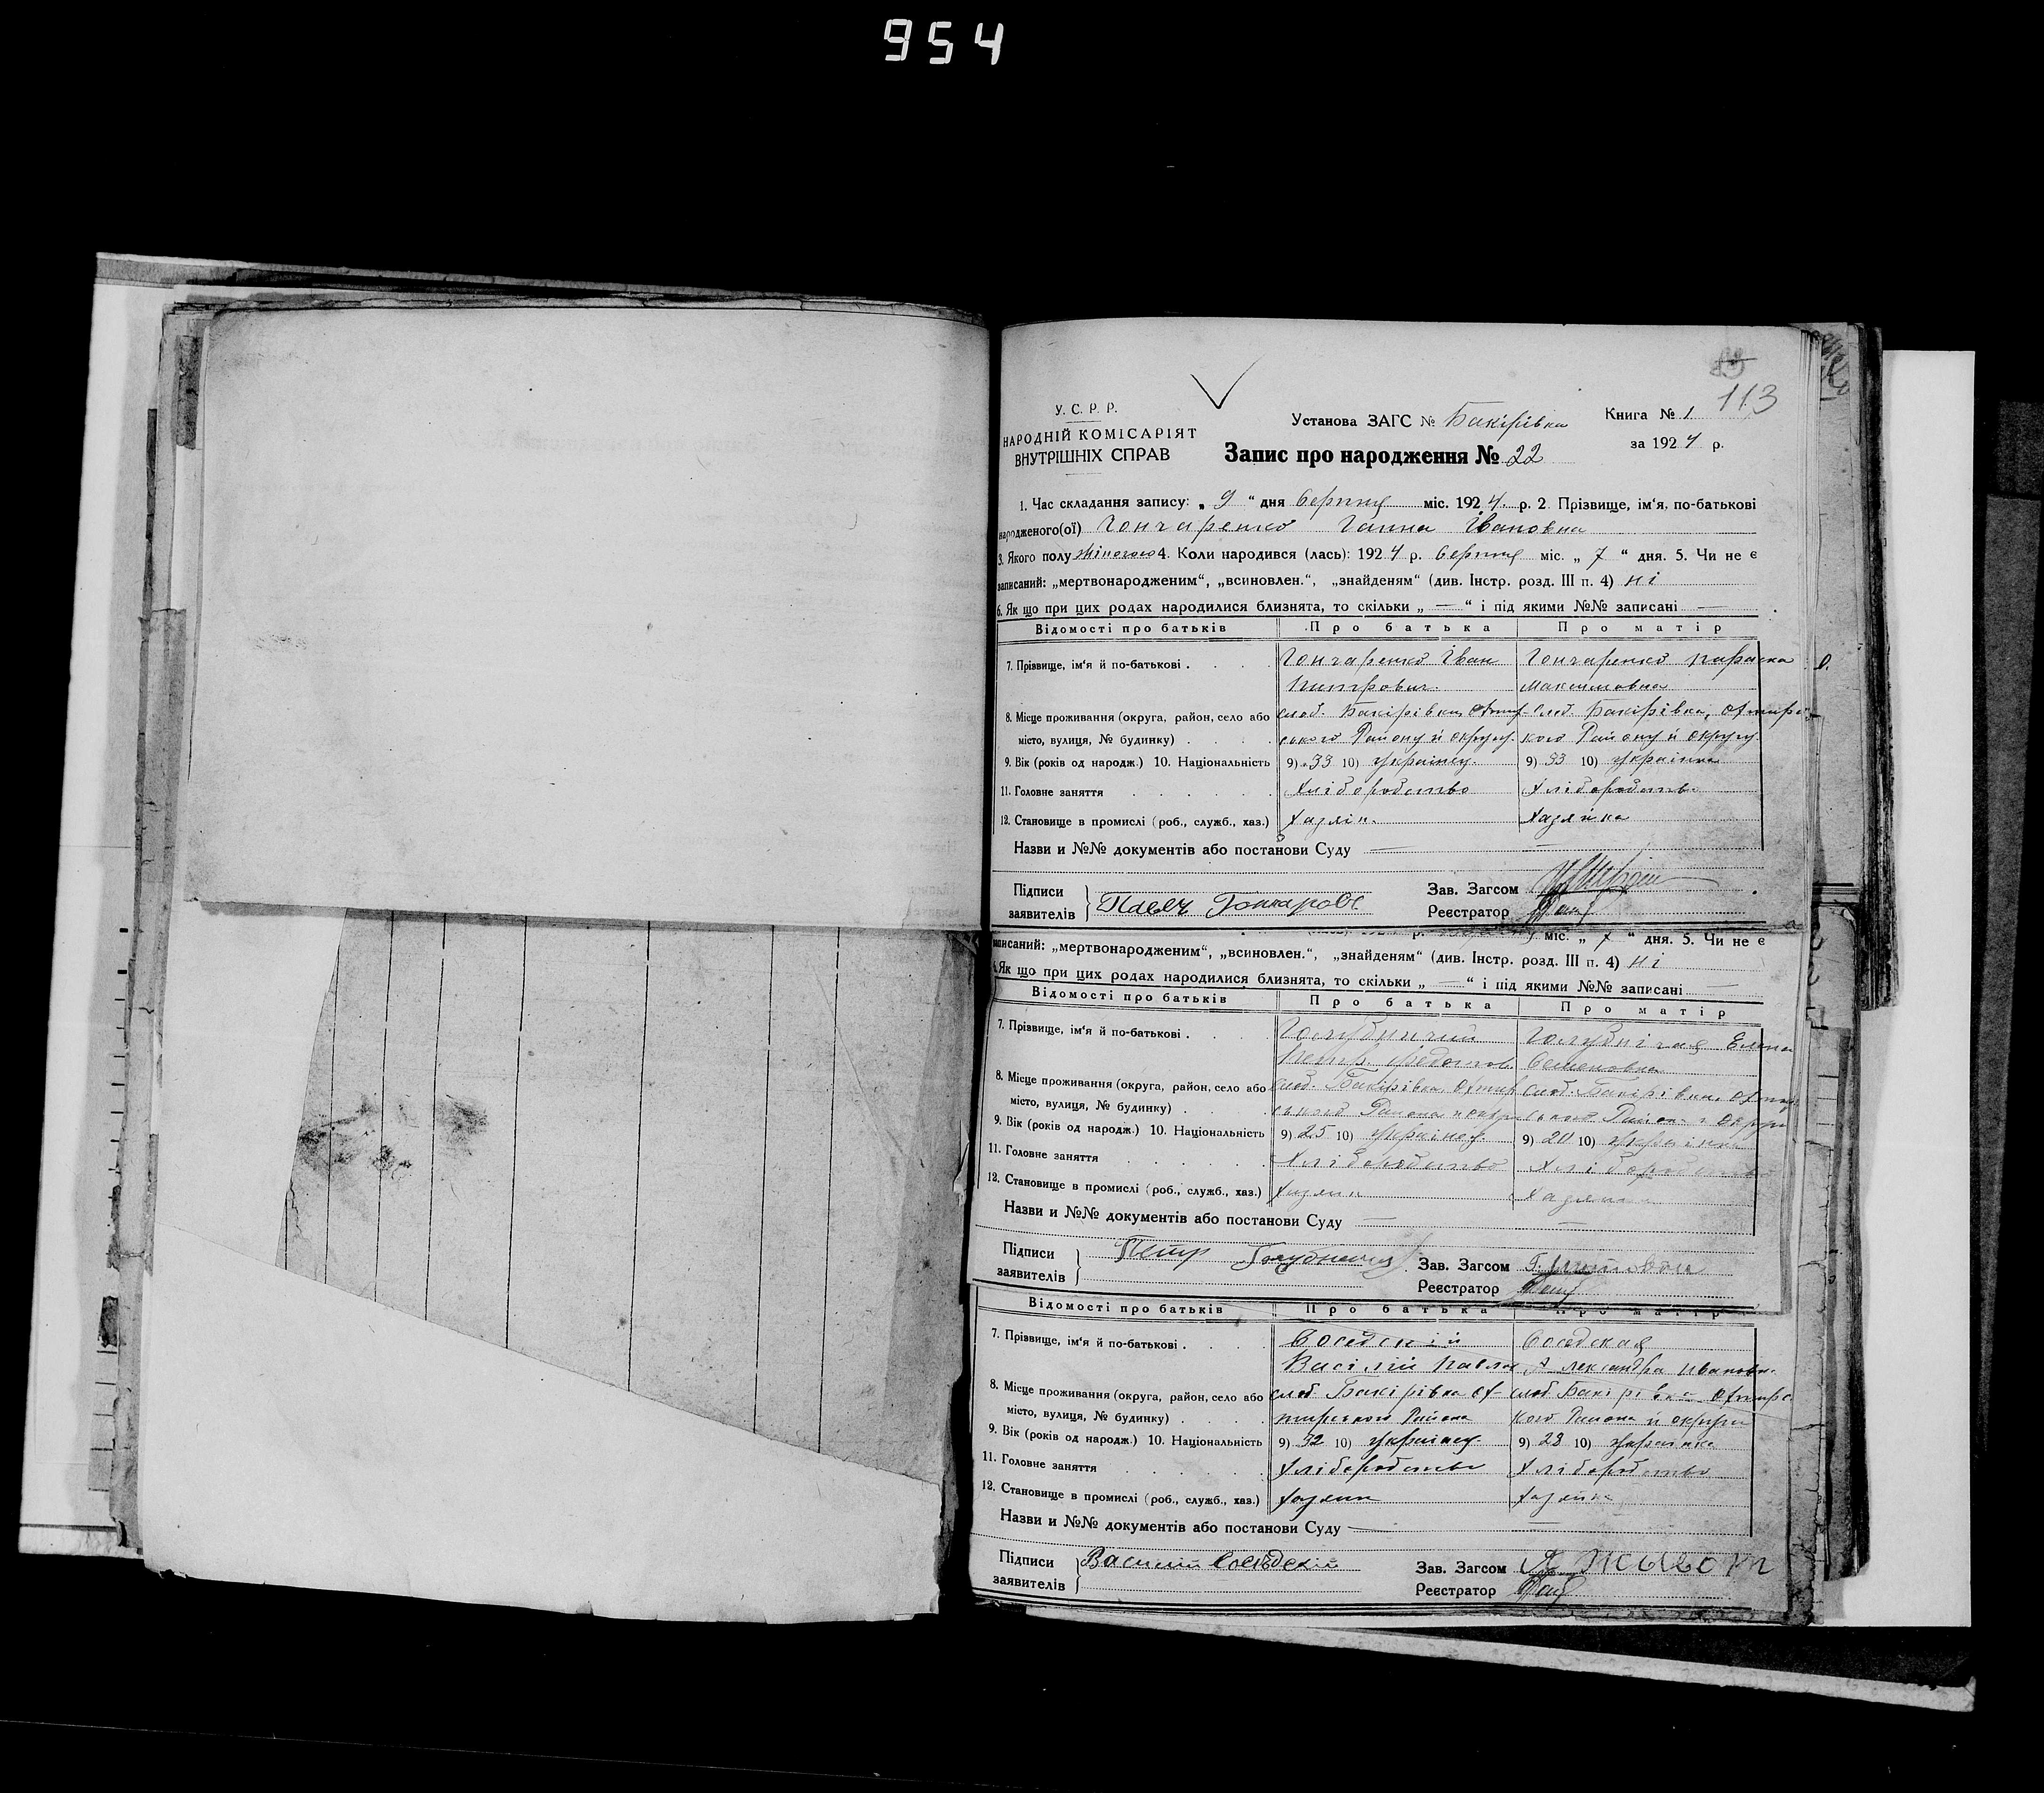 954
113
У. С. Р. Р.
НАРОДНІЙ КОМІСАРІЯТ
ВНУТРІШНІХ СПРАВ
Установа ЗАГС № Бакірівка
Книга № 1
за 1924 р.
Запис про народження № 22
1. Час складання запису: „ 9 “ дня серпня міс. 1924 р. 2. Прізвище, ім'я, по-батькові
народженого(ої) Гончаренко Ганна Івановна
3. Якого полу жіночого 4. Коли народився (лась): 1924 р. серпня міс. „ 7 “ дня. 5. Чи не є
записаний: „мертвонародженим“, „всиновлен.“, „знайденям“ (див. Інстр. розд. III п. 4) ні
6. Як що при цих родах народилися близнята, то скільки „ — “ і під якими №№ записані —
Відомості про батьків Про батька Про матір
7. Прізвище, ім'я й по-батькові . Гончаренко Іван Гончаренко Параска
Питрович. Максимовна
8. Місце проживання (округа, район, село або слоб. Бакірівка, Охтир- слоб. Бакірівка, Охтирс-
місто, вулиця, № будинку) . ського Району й округу. кого Району й округу
9. Вік (років од народж.) 10. Національність 9) 33 10) Українец. 9) 33 10) Українка
11. Головне заняття Хліборобство Хліборобство
12. Становище в промислі (роб., служб., хаз.) Хазяін. Хазяйка
Назви и №№ документів або постанови Суду — —
Підписи
заявителів
Зав. Загсом
Реєстратор
міс. „ 7 “ дня. 5. Чи не є
записаний: „мертвонародженим“, „всиновлен.“, „знайденям“ (див. Інстр. розд. III п. 4) ні
6. Як що при цих родах народилися близнята, то скільки „ — “ і під якими №№ записані —
Відомості про батьків Про батька Про матір
7. Прізвище, ім'я й по-батькові . Голубничий Голубнічая Елена
Петр. Федотов. Семеновна
8. Місце проживання (округа, район, село або слоб. Бакірівка Охтир слоб. Бакірівка, Охтир
місто, вулиця, № будинку) . ського Района и округи ського Района и округи
9. Вік (років од народж.) 10. Національність 9) 25 10) Українец. 9) 20 10) Українка
11. Головне заняття Хліборобство Хліборобство
12. Становище в промислі (роб., служб., хаз.) Хазяин Хазяйка
Назви и №№ документів або постанови Суду — —
Підписи
заявителів Петр Голубничий
Зав. Загсом
Реєстратор
Відомості про батьків Про батька Про матір
7. Прізвище, ім'я й по-батькові . Соседскій Соседская
Васілій Павлов Александра Ивановн.
8. Місце проживання (округа, район, село або слоб. Бакірівка Ох- слоб. Бакірівка Охтирс
місто, вулиця, № будинку) . тирського Района кого Района й округи
9. Вік (років од народж.) 10. Національність 9) 32 10) Українец 9) 28 10) Українка
11. Головне заняття Хліборобство Хліборобство
12. Становище в промислі (роб., служб., хаз.) Хазяин Хазяйка
Назви и №№ документів або постанови Суду — —
Підписи
заявителів Василий Соседский
Зав. Загсом
Реєстратор